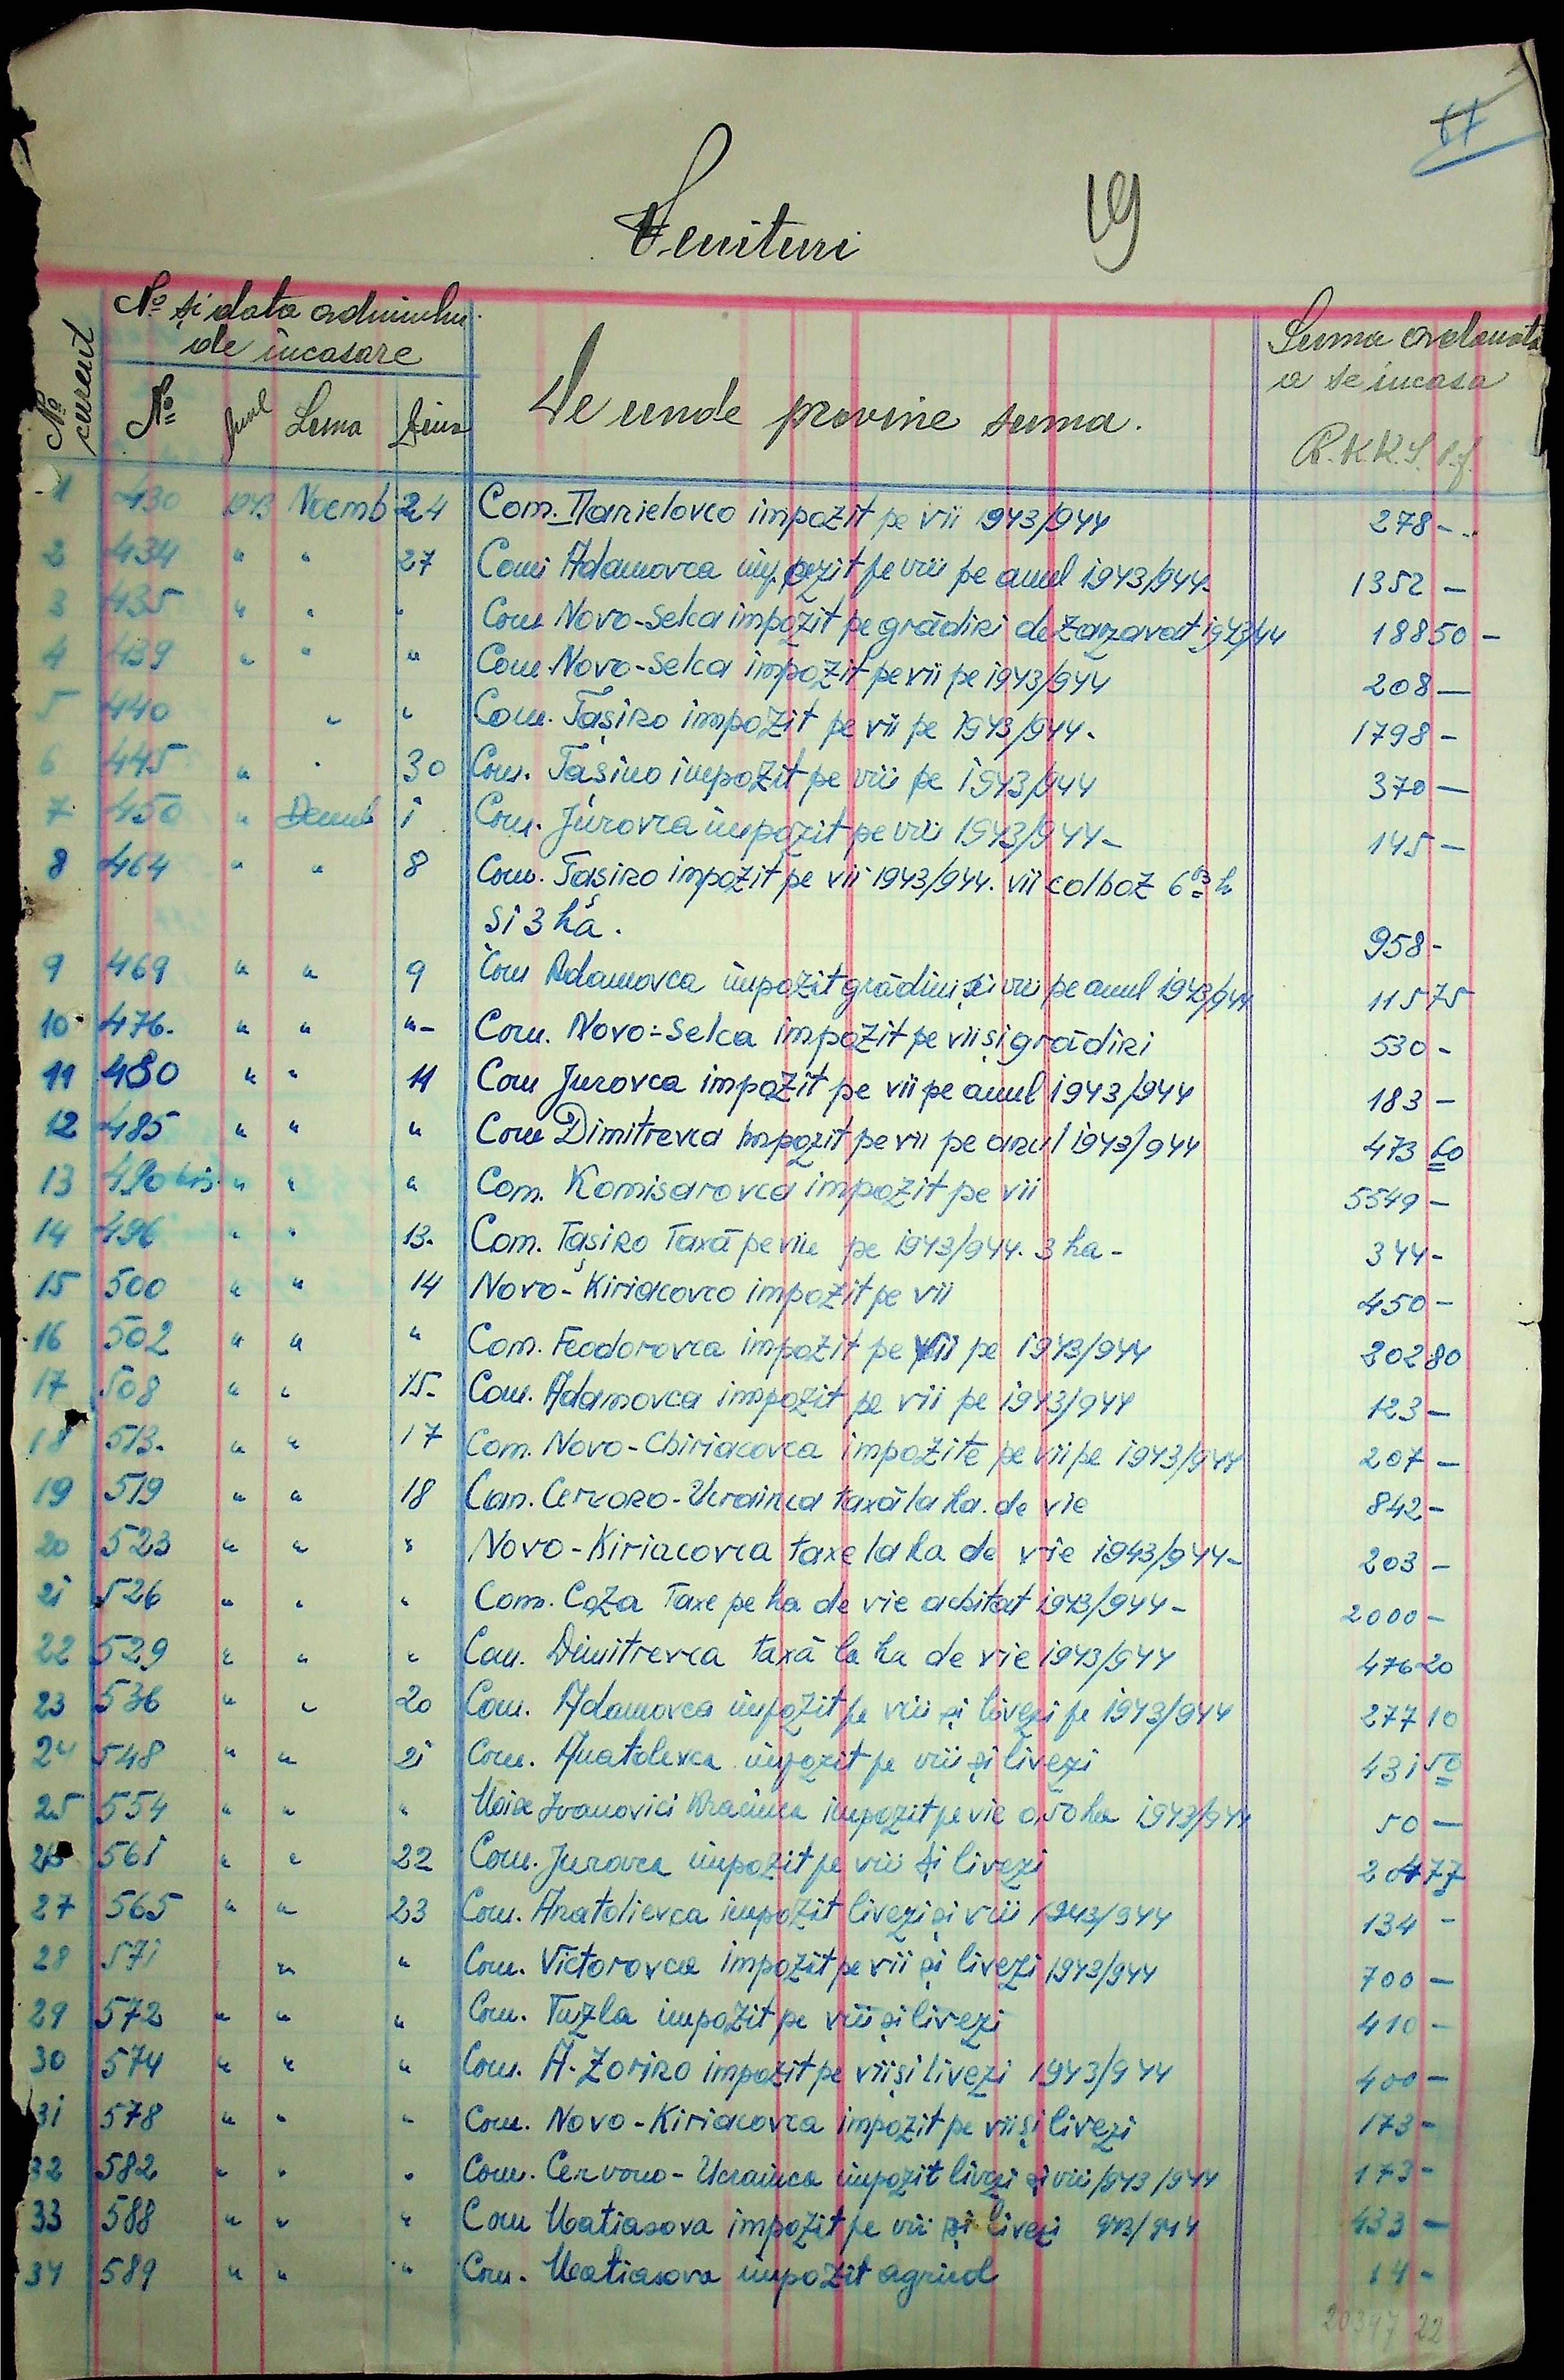 19
Venituri
No și data ordinului
de încasare
Suma ordonată
a se încasa
No curent
No
Anul
Luna
Ziua
De unde provine suma.
R.K.K.S. Pf.
1 430 1943 Noemb 24 Com. Danielovca impozit pe vii 1943/944 278 -
2 434 " " 27 Com Adamovca impozit pe vii pe anul 1943/944- 1352 -
3 435 " " " Com Novo-Selca impozit pe grădini de zarzavat 1943/44 188 50 -
4 439 " " " Com Novo-Selca impozit pe vii pe 1943/944 208 -
5 440 " " Com. Tașino impozit pe vii pe 1943/944. 1798 -
6 445 " " 30 Com. Tașino impozit pe vii pe 1943/944 370 -
7 450 " Decemb 1 Com. Jurovca impozit pe vii 1943/944 - 145 -
8 464 " " 8 Com. Tașino impozit pe vii 1943/944. vii colhoz 6 03 h
și 3 ha. 958 -
9 469 " " 9 Com Adamovca impozit grădini și vii pe anul 1943/944 115 75
10 476. " " "- Com. Novo-Selca impozit pe vii și grădini 530 -
11 480 " " 11 Com Jurovca impozit pe vii pe anul 1943/944 183 -
12 485 " " " Com Dimitrevca impozit pe vii pe anul 1943/944 473 60
13 490 bis. " " " Com. Komisarovca impozit pe vii 5549 -
14 496 " " 13. Com. Tașino Taxă pe vie pe 1943/944. 3 ha - 344 -
15 500 " " 14 Novo-Kiriacovca impozit pe vii 450 -
16 502 " " " Com. Feodorovca impozit pe vii pe 1943/944 202 80
17 508 " " 15. Com. Adamovca impozit pe vii pe 1943/944 123 -
18 513. " " 17 Com. Novo-Chiriacovca impozite pe vii pe 1943/944 207 -
19 519 " " 18 Com. Cervono-Ucrainca taxă la ha. de vie 842 -
20 523 " " " Novo-Kiriacovca taxe la ha de vie 1943/944 - 203 -
21 526 " " " Com. Coza Taxe pe ha de vie achitat 1943/944 - 2000 -
22 529 " " " Com. Dimitrevca taxă la ha de vie 1943/944 476 20
23 536 " " 20 Com. Adamovca impozit pe vii și livezi pe 1943/944 277 10
24 548 " " 21 Com. Anatolevca impozit pe vii și livezi 431 50
25 554 " " " Ivanovici impozit pe vie 0,50 ha 1943/944 50 -
26 561 " " 22 Com. Jurovca impozit pe vii și livezi 204 77
27 565 " " 23 Com. Anatolievca impozit livezi și vii 1943/944 134 -
28 571 " " Com. Victorovca impozit pe vii și livezi 1943/944 700 -
29 572 " " " Com. Tuzla impozit pe vii și livezi 410 -
30 574 " " " Com. A. Zorino impozit pe vii și livezi 1943/944 400 -
31 578 " " " Com. Novo-Kiriacovca impozit pe vii și livezi 173 -
32 582 " " " Com. Cervono-Ucrainca impozit livezi și vii 1943/944 173 -
33 588 " " " Com Matiasova impozit pe vii și livezi 943/944 433 -
34 589 " " " Com. Matiasova impozit agricol 14 -
20397 22